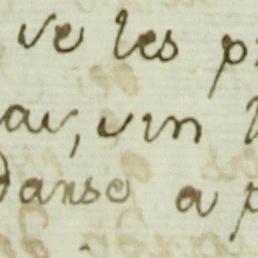 ve les p
au, vin
danse a p